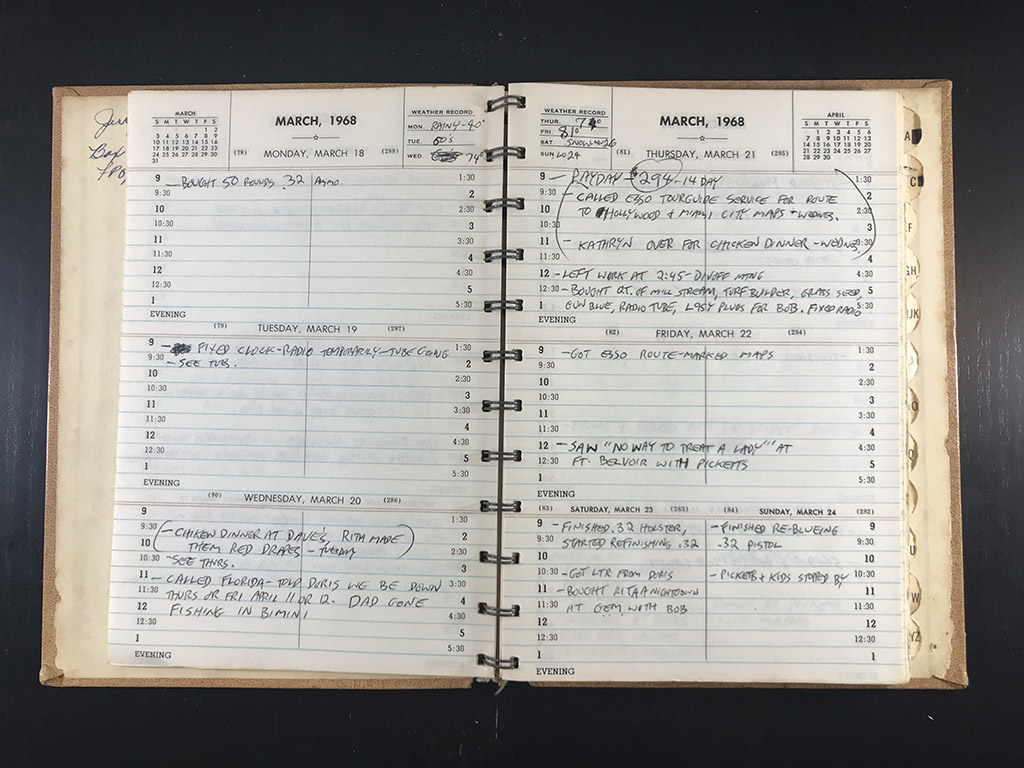 MARCH
S M T W T F S
1 2
3 4 5 6 7 8 9
10 11 12 13 14 15 16
17 18 19 20 21 22 23
24 25 26 27 28 29 30
31
MARCH, 1968
WEATHER RECORD
MON. RAINY-40°
TUE. 60'S
WED. 74°
(78) MONDAY, MARCH 18 (288)
9 - BOUGHT 50 ROUNDS .32 AMMO 1:30
9:30 2
10 2:30
10:30 3
11 3:30
11:30 4
12 4:30
12:30 5
1 5:30
EVENING
(79) TUESDAY, MARCH 19 (287)
9 - FIXED CLOCK-RADIO TEMPORARILY-TUBE GOING 1:30
9:30 - SEE TUES. 2
10 2:30
10:30 3
11 3:30
11:30 4
12 4:30
12:30 5
1 5:30
EVENING
(80) WEDNESDAY, MARCH 20 (286)
9 1:30
9:30 - CHIKEN DINNER AT DAVE'S, RITA MADE 2
10 THEM RED DRAPES - TUESDAY 2:30
10:30 - SEE THURS. 3
11 - CALLED FLORIDA - TOLD DORIS WE BE DOWN 3:30
11:30 THURS OR FRI APRIL 11 OR 12. DAD GONE 4
12 FISHING IN BIMINI 4:30
12:30 5
1 5:30
EVENING
WEATHER RECORD
THUR.
FRI. 81°
SAT. SNOW
SUN. LO 24
MARCH, 1968
APRIL
S M T W T F S
1 2 3 4 5 6
7 8 9 10 11 12 13
14 15 16 17 18 19 20
21 22 23 24 25 26 27
28 29 30
(81) THURSDAY, MARCH 21 (285)
9 - PAYDAY - $294 - 14 DAY 1:30
9:30 - CALLED ESSO TOURGUIDE SERVICE FOR ROUTE 2
10 TO HOLLYWOOD & MIAMI CITY MAPS - WEDNES. 2:30
10:30 3
11 - KATHRYN OVER FOR CHICKEN DINNER - WEDNES 3:30
11:30 4
12 - LEFT WORK AT 2:45 - MTNG 4:30
12:30 - BOUGHT QT. OF MILL STREAM, TURF BUILDER, GRASS SEED, 5
1 GUN BLUE, RADIO TUBE, PLUGS FOR BOB. FIXED RADIO 5:30
EVENING
(82) FRIDAY, MARCH 22 (284)
9 - GOT ESSO ROUTE-MARKED MAPS 1:30
9:30 2
10 2:30
10:30 3
11 3:30
11:30 4
12 - SAW "NO WAY TO TREAT A LADY" AT 4:30
12:30 FT. BELVOIR WITH PICKETTS 5
1 5:30
EVENING
(83) SATURDAY, MARCH 23 (283)
9 - FINISHED .32 HOLSTER,
9:30 STARTED REFINISHING .32
10
10:30 - GOT LTR FROM DORIS
11 - BOUGHT RITA A NIGHTGOWN
11:30 AT GEM WITH BOB
12
12:30
1
EVENING
(84) SUNDAY, MARCH 24 (282)
- FINISHED RE-BLUEING 9
.32 PISTOL 9:30
10
- PICKETS & KIDS STOPPED BY 10:30
11
11:30
12
12:30
1
A
C
EF
GH
IJK
U
W
YZ